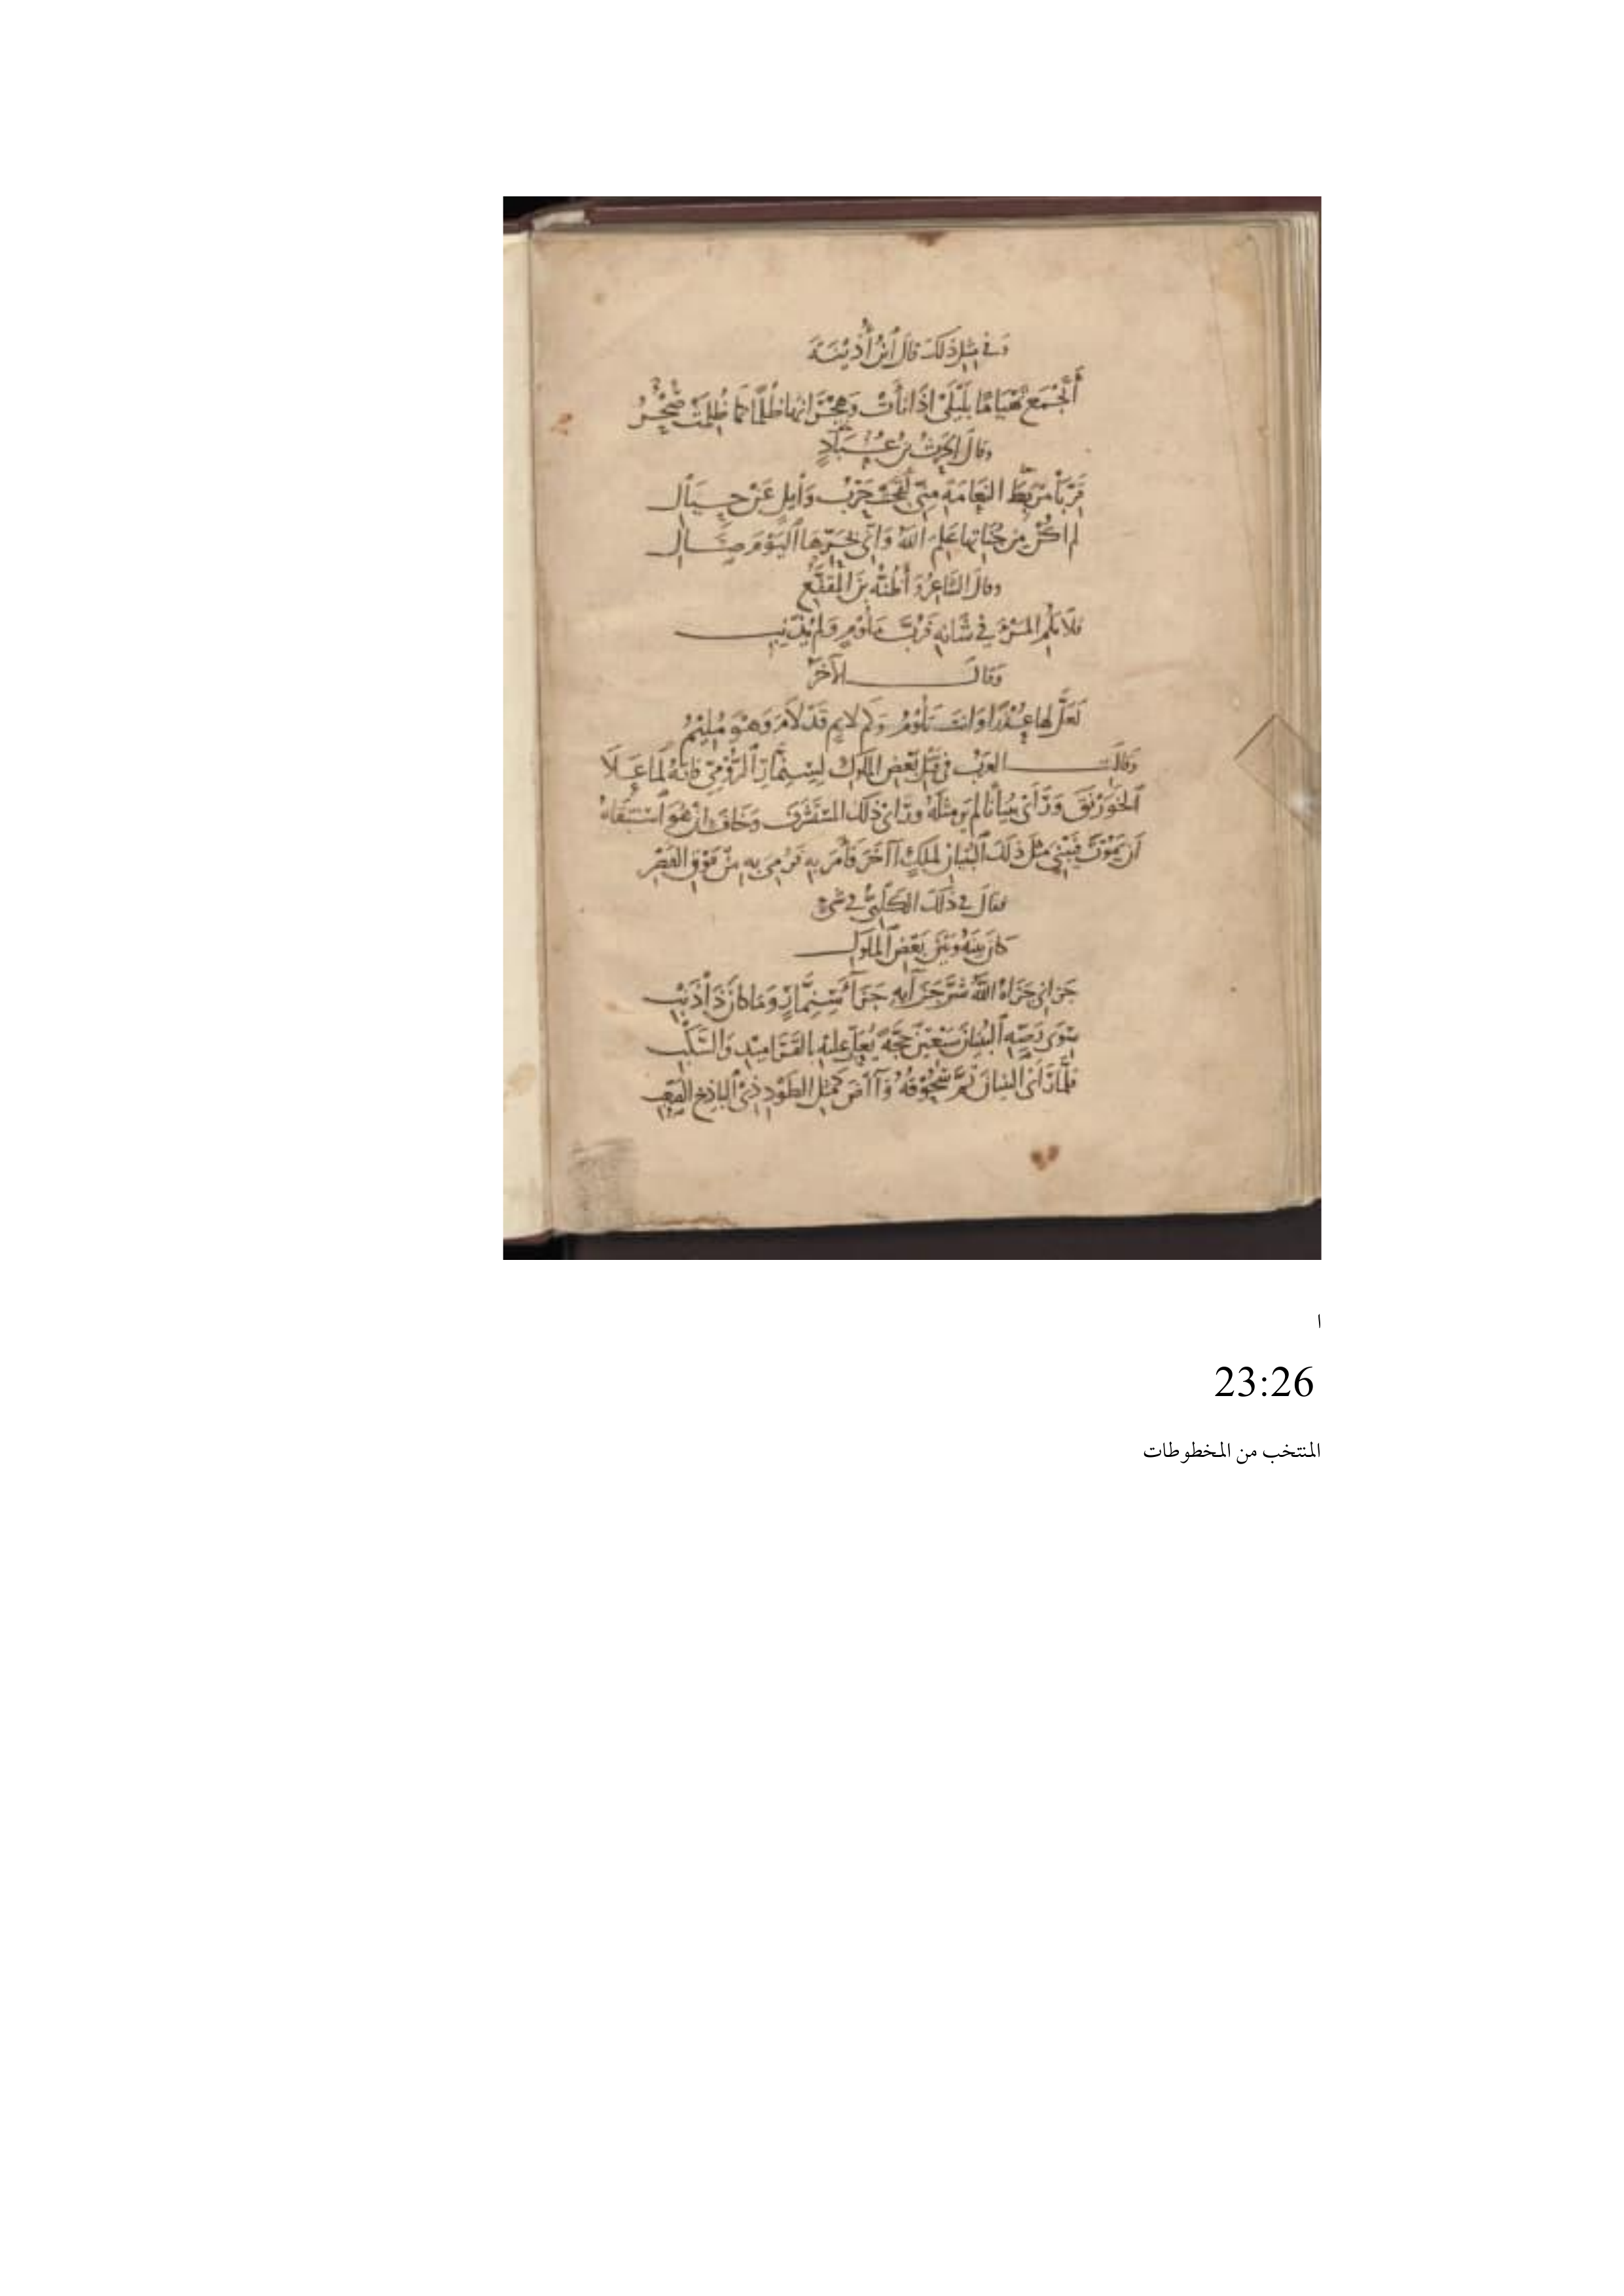 وَفي مِثْلِ ذَلكَ قالَ ابنُ أُذَيْنَةَ
أَتَجْمَعُ تَهْيَامًا بِلَيْلَى إِذَا نَأَتْ وَهِجْرَانَها ظُلْمًا كَمَا ظُلِمَتْ صُخْرُ
وقالَ الحرِثُ بنُ عُبَادٍ
قَرِّبَا مَرْبِطَ النَعَامَةِ مِنّي لَقِحَتْ حَرْبُ وَايِلٍ عَنْ حِيَالِ
لم اكُنْ مِن جُناتِها عَلِمَ اللهُ وَانّي بحَرِّهَا اليَوْمَ صَالِ
وقالَ الشاعِرُ وَأَظُنُّهُ بنَ المُقَفَّع
فلا تَلُمِ المَرْءَ في شَانِهِ فَرُبَّ مَلُومٍ وَلَمْ يُذْنِبِ
وَقَالَ الآخَرُ
لَعَلَّ لها عُذْرًا وَانتَ تَلُومُ وَكم لايمٍ قَدْ لَامَ وَهْوَ مُلِيْمُ
وَقالَتِ العَرَبُ في قَتْلِ بَعْضِ الملوكِ لِسِنِمَّارَ الرُّوْمِيّ فانّهُ لما عَلَا
الخَوَرْنَقَ وَرَأَى بُنيَانًا لم يَرَ مثْلَهُ ورَاى ذلكَ المُسْتَشْرَفَ وخافَ ان هُوَ اسْتَبْقَاهُ
أَن يَمُوْتَ فيَبْنِيَ مثْلَ ذلكَ البُنيانِ لمَلِكٍ آخَرَ فَأَمَرَ بِهِ فَرُمِيَ بِهِ مِنْ فَوْقِ القَصْرِ
فقالَ في ذلكَ الكَلْبِيُّ في شيءٍ
كانَ بَينَهُ وَبَيْنَ بَعْضِ الملُوكِ
جَزاني جَزَاهُ اللهُ شَرَّ جَزَآيِهِ جَزَآءَ سِنِمَّارٍ وَمَا كانَ ذَا ذَنْبِ
سِوَى رَصِّهِ البُنيانَ سَبْعِيْنَ حِجَّةً يُعَلّي عليْهِ بالقَرَامِيْدِ وَالسَّكْبِ
فلمّا رَأَى البُنيانَ تَمَّ سُحُوْقُهُ وَآضَ كَمِثْلِ الطَوْدِ ذِيْ الباذِخِ الصَّعْبِ
ا
23:26
المنتخب من المخطوطات